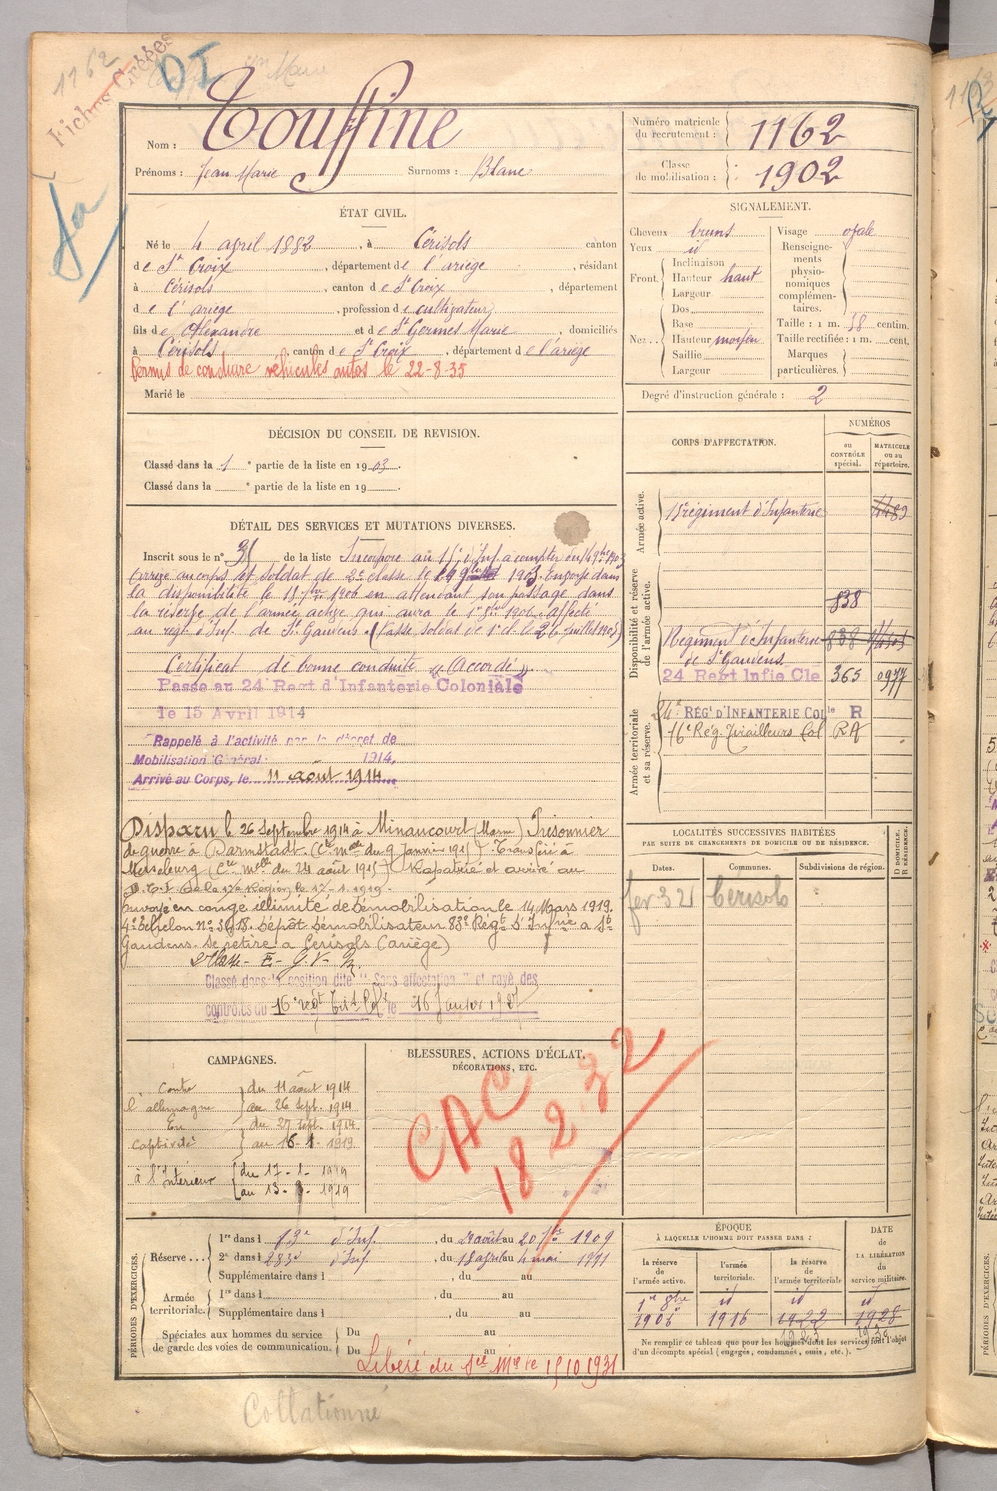 1162
Fiches Créées
DI
Nom : Touffine
Prénoms : Jean Marie Surnoms : Blanc
Numéro matricule du recrutement : 1162
Classe de mobilisation : 1902
ÉTAT CIVIL.
Né le 4 avril 1882, à Cérisols canton
de St Croix, département de l'ariège, résidant
à Cérisols, canton de St Croix, département
de l'ariège, profession de cultivateur
fils de Alexandre et de St Germes Marie, domiciliés
à Cérisols canton de St Croix, département de l'ariège
Permis de conduire véhicules autos le 22-8-35
Marié le
SIGNALEMENT.
Cheveux bruns
Yeux id
Front. Inclinaison
Hauteur haut
Largeur
Nez .. Dos
Base
Hauteur moyen
Saillie
Largeur
Visage ovale
Renseignements physionomiques complémentaires.
Taille : 1 m. 58 centim.
Taille rectifiée : 1 m. cent.
Marques particulières.
Degré d'instruction générale : 2
DÉCISION DU CONSEIL DE REVISION.
Classé dans la 1e partie de la liste en 1903.
Classé dans la e partie de la liste en 19
DÉTAIL DES SERVICES ET MUTATIONS DIVERSES.
Inscrit sous le n° 31 de la liste Incorporé au 15e d'Inf. a compter du
arrivé au corps et soldat de 2e classe le 1903. Envoyé dans
la disponibilité le 1906 en attendant son passage dans
la réserve de l'armée active qui aura le 1906. affecté
au régt d'Inf. de St Gaudens. (Passé soldat de 1e cl. le 26 juillet 1905)
Certificat de bonne conduite "Accordé"
Passé au 24 Regt d'Infanterie Coloniale
le 15 Avril 1914
Rappelé à l'activité par le décret de
Mobilisation Générale 1914.
Arrivé au Corps, le 11 août 1914
Disparu le 26 Septembre 1914 à Minaucourt (Marne) Prisonnier
de guerre à Darmstadt (Cte melle du 9 Janvier 1915) Transféré à
Merseburg (Cte melle du 24 août 1915) Rapatrié et arrivé au
D.T.I de la 17e Région le 17-1-1919.
Envoyé en congé illimité de démobilisation le 14 Mars 1919.
4e échelon n° 3618. Dépôt démobilisateur 83e Régt d'Infrie à St
Gaudens. Se retire a Cérisols (ariège)
Classé dans la position dite "Sans affectation" et rayé des
contrôles du 16e régt le 16 Janvier 1927
CORPS D'AFFECTATION.
NUMÉROS
au CONTRÔLE spécial.
MATRICULE ou au répertoire.
Armée active.
15e régiment d'Infanterie
Disponibilité et réserve de l'armée active.
838
Régiment d'Infanterie de St Gaudens 838
24 Regt Infie Cle 365 0977
Armée territoriale et sa réserve.
24e RÉGt D'INFANTERIE COLle R
16e Rég. Tirailleurs Col RA
LOCALITÉS SUCCESSIVES HABITÉES
PAR SUITE DE CHANGEMENTS DE DOMICILE OU DE RÉSIDENCE.
Dates. Communes. Subdivisions de région. D DOMICILE. R RÉSIDENCE.
Cerisols
CAMPAGNES.
Contre l'allemagne du 11 août 1914
au 26 sept. 1914
En captivité du 27 sept. 1914
au 16-1-1919.
à l'Intérieur du 17-1-1919
au 13-3-1919
BLESSURES, ACTIONS D'ÉCLAT,
DÉCORATIONS, ETC.
CAC
18 2 32
PÉRIODES D'EXERCICES.
Réserve... 1re dans l d'Inf., du août au 20 1909
2e dans l 283e d'Inf., du 18 avril au 4 mai 1911
Supplémentaire dans l, du au
Armée territoriale. 1re dans l, du au
Supplémentaire dans l, du au
Spéciales aux hommes du service de garde des voies de communication. Du au
Du au
Libéré du sce mre le 15 10 1931
ÉPOQUE
À LAQUELLE L'HOMME DOIT PASSER DANS :
la réserve de l'armée active.
l'armée territoriale.
la réserve de l'armée territoriale
DATE de LA LIBÉRATION du service militaire.
1er 8bre 1906
id 1916
id 1922
id 1928
Ne remplir ce tableau que pour les hommes dont les services font l'objet
d'un décompte spécial (engagés, condamnés, omis, etc.).
Collationné